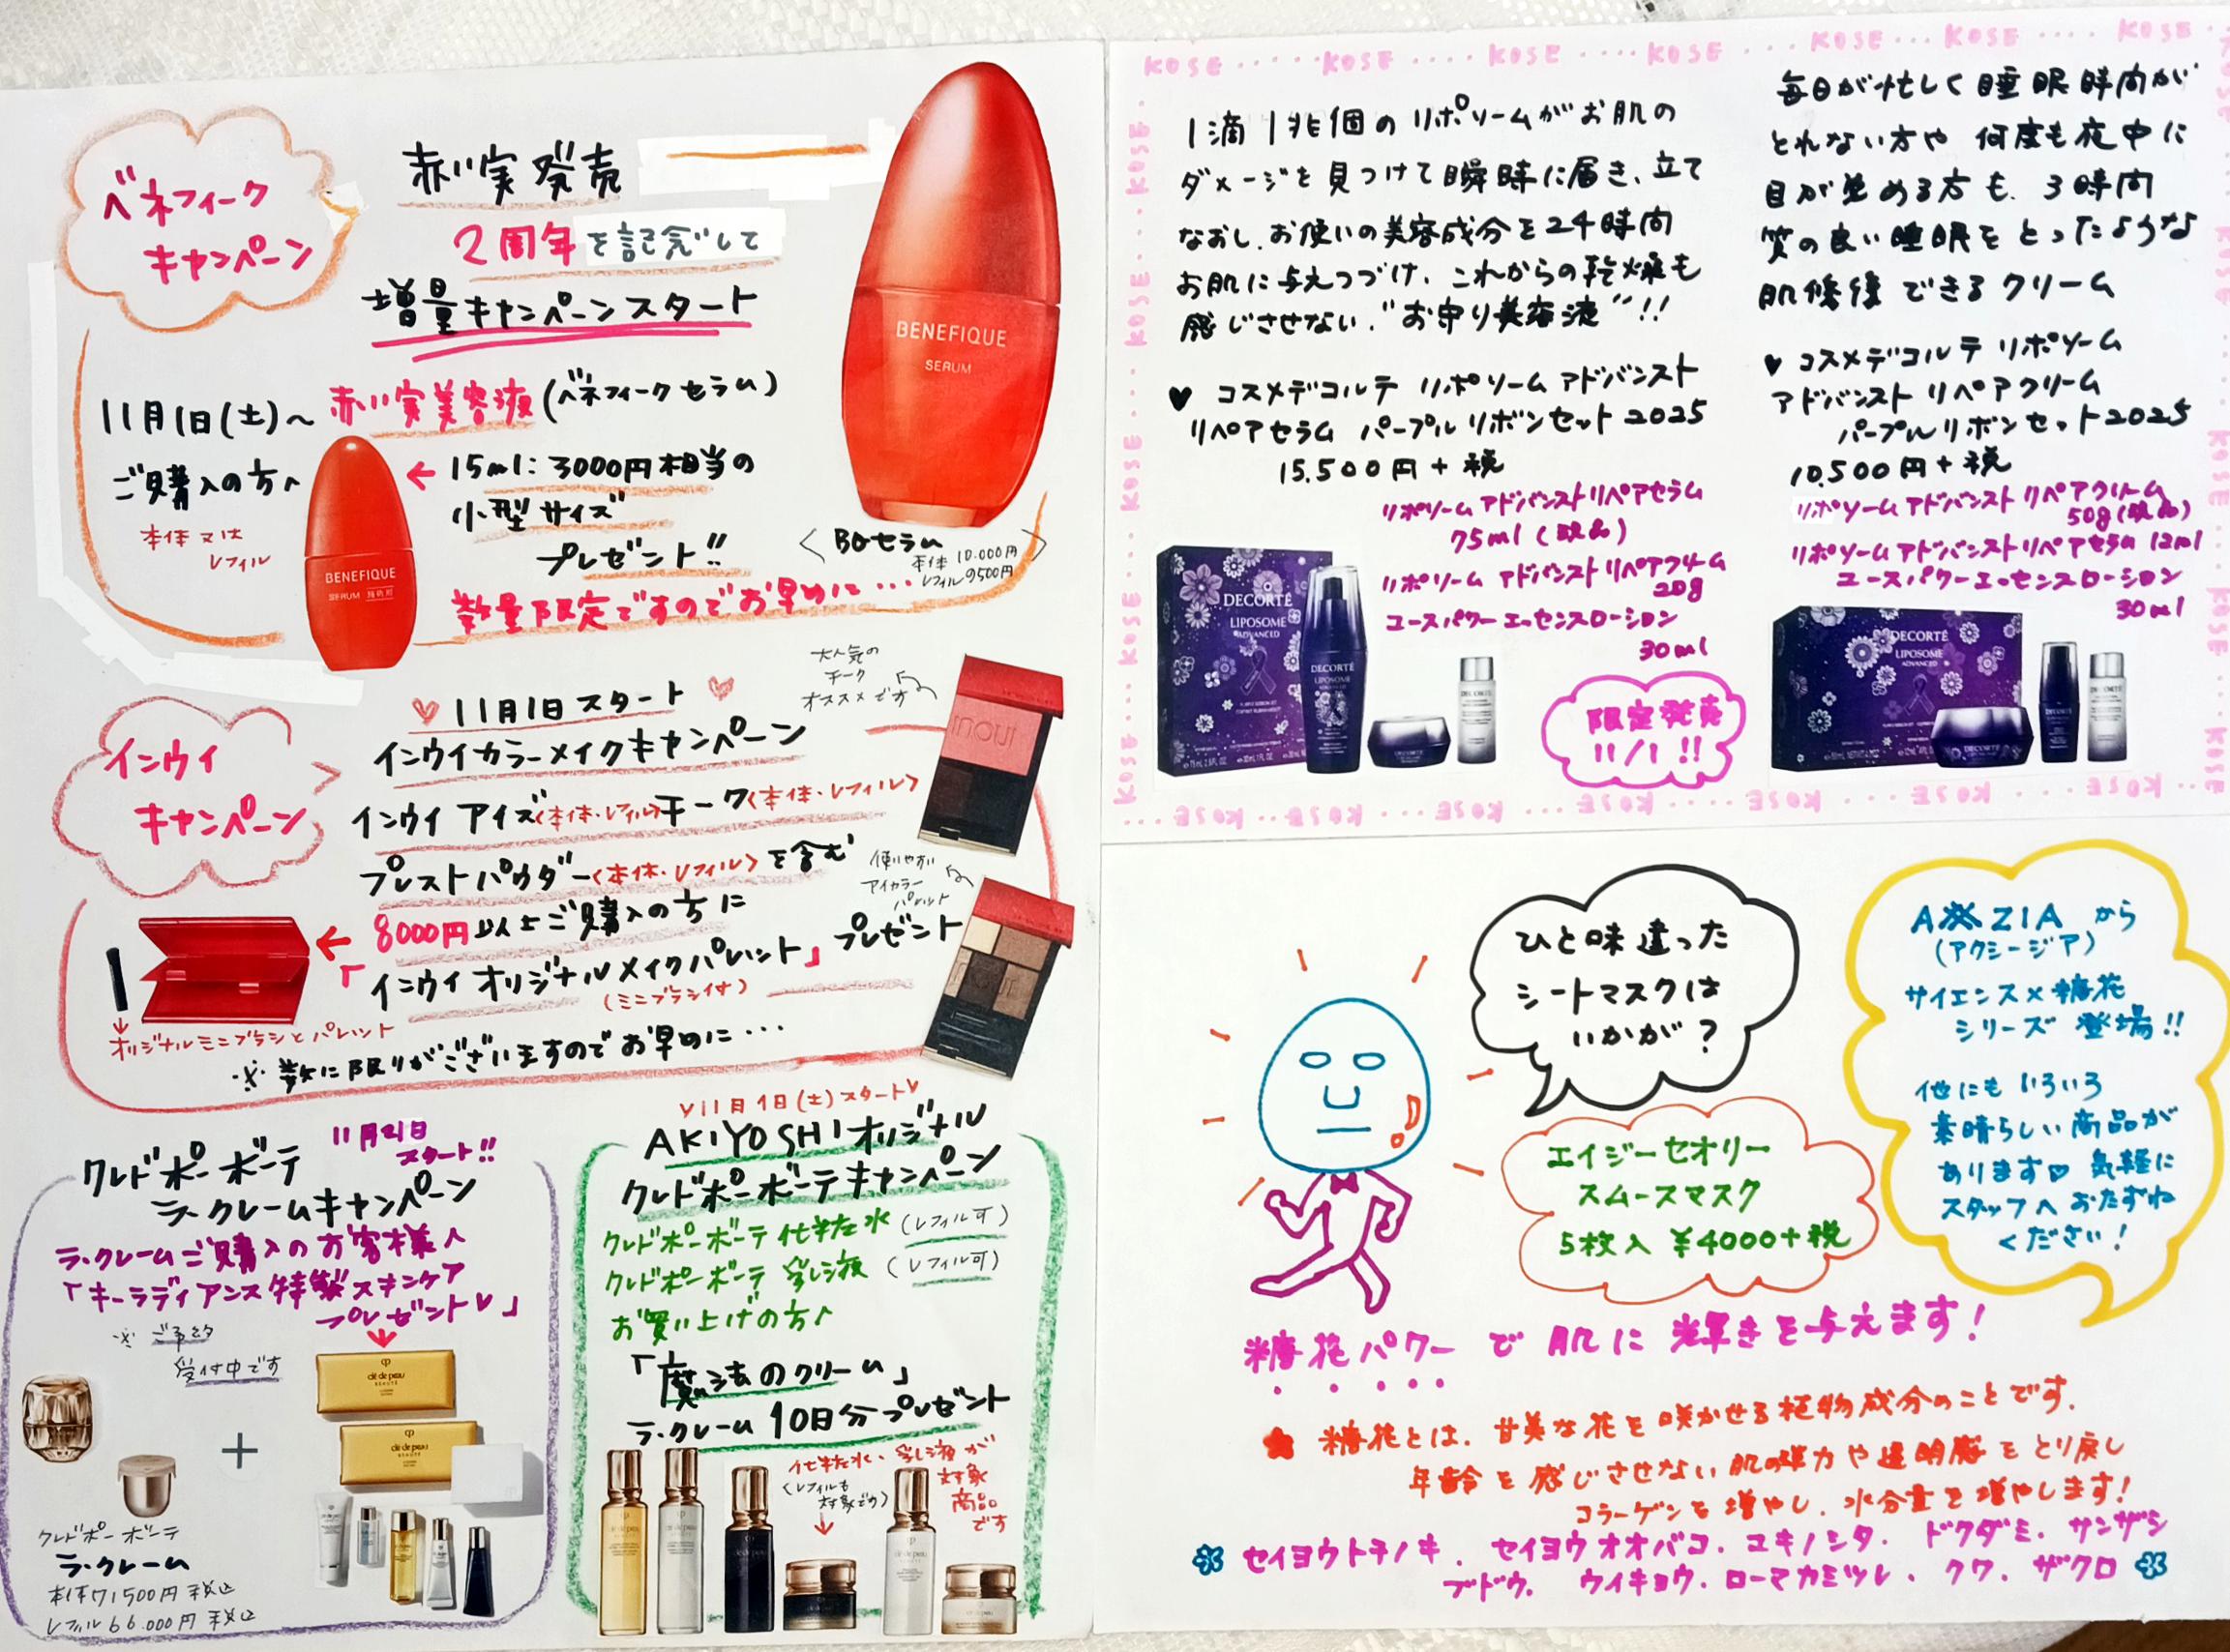 ベネフィーク
キャンペーン
赤い実発売
2周年を記念して
増量キャンペーンスタート
11月1日(土)〜 赤い実美容液(ベネフィークセラム)
ご購入の方へ
本体又は
レフィル
← 15ml:3000円相当の
小型サイズ
プレゼント!!
数量限定ですのでお早めに…
BENEFIQUE
SERUM
BENEFIQUE
SERUM
〈BQセラム〉
本体 10.000円
レフィル 9500円
インウイ
キャンペーン
♡ 11月1日スタート ♡
インウイカラーメイクキャンペーン
インウイ アイズ〈本体・レフィル〉チーク〈本体・レフィル〉
プレストパウダー〈本体・レフィル〉を含む
← 8000円以上ご購入の方に
「インウイ オリジナルメイクパレット」プレゼント
(ミニブラシ付)
※数に限りがございますのでお早めに…
オリジナルミニブラシとパレット
大人気の
チーク
オススメです
INOUI
使いやすい
アイカラー
パレット
INOUI
クレドポーボーテ
11月21日
スタート!!
ラ・クレームキャンペーン
ラ・クレームご購入のお客様へ
「キーラディアンス特製スキンケア
プレゼント♥」
※ご予約
受付中です
clé de peau
BEAUTÉ
clé de peau
BEAUTÉ
+
クレドポーボーテ
ラ・クレーム
本体71500円税込
レフィル66.000円税込
♥11月1日(土)スタート♥
AKIYOSHIオリジナル
クレドポーボーテキャンペーン
クレドポーボーテ化粧水(レフィル可)
クレドポーボーテ乳液(レフィル可)
お買い上げの方へ
「魔法のクリーム」
ラ・クレーム10日分プレゼント
化粧水・乳液が
対象
商品
です
(レフィルも
対象です)
KOSE ・・・・・ KOSE ・・・・ KOSE ・・・・ KOSE ・・・・ KOSE ・・・ KOSE ・・・・ KOSE
1滴1兆個のリポソームがお肌の
ダメージを見つけて瞬時に届き、立て
なおし、お使いの美容成分を24時間
お肌に与えつづけ、これからの乾燥も
感じさせない、"お守り美容液"!!
♥ コスメデコルテ リポソーム アドバンスト
リペアセラム パープルリボンセット2025
15.500円+税
リポソームアドバンストリペアセラム
75ml(現品)
リポソーム アドバンストリペアクリーム
20g
ユースパワーエッセンスローション
30ml
DECORTÉ
LIPOSOME
ADVANCED
DECORTÉ
LIPOSOME
限定発売
11/1!!
毎日が忙しく睡眠時間が
とれない方や何度も夜中に
目が覚める方も、3時間
質の良い睡眠をとったような
肌修復できるクリーム
♥ コスメデコルテ リポソーム
アドバンスト リペアクリーム
パープルリボンセット2025
10.500円+税
リポソームアドバンスト リペアクリーム
50g(現品)
リポソームアドバンストリペアセラム 12ml
ユースパワーエッセンスローション
30ml
DECORTÉ
LIPOSOME
ADVANCED
ひと味違った
シートマスクは
いかが?
エイジーセオリー
スムースマスク
5枚入 ¥4000+税
AXXZIA から
(アクシージア)
サイエンス×糖花
シリーズ 登場!!
他にもいろいろ
素晴らしい商品が
あります♡ 気軽に
スタッフへおたずね
ください!
糖花パワーで肌に輝きを与えます!
糖花とは、甘美な花を咲かせる植物成分のことです。
年齢を感じさせない肌の弾力や透明感をとり戻し
コラーゲンを増やし、水分量を増やします!
セイヨウトチノキ、セイヨウオオバコ、ユキノシタ、ドクダミ、サンザシ
ブドウ、ウイキョウ、ローマカミツレ、クワ、ザクロ